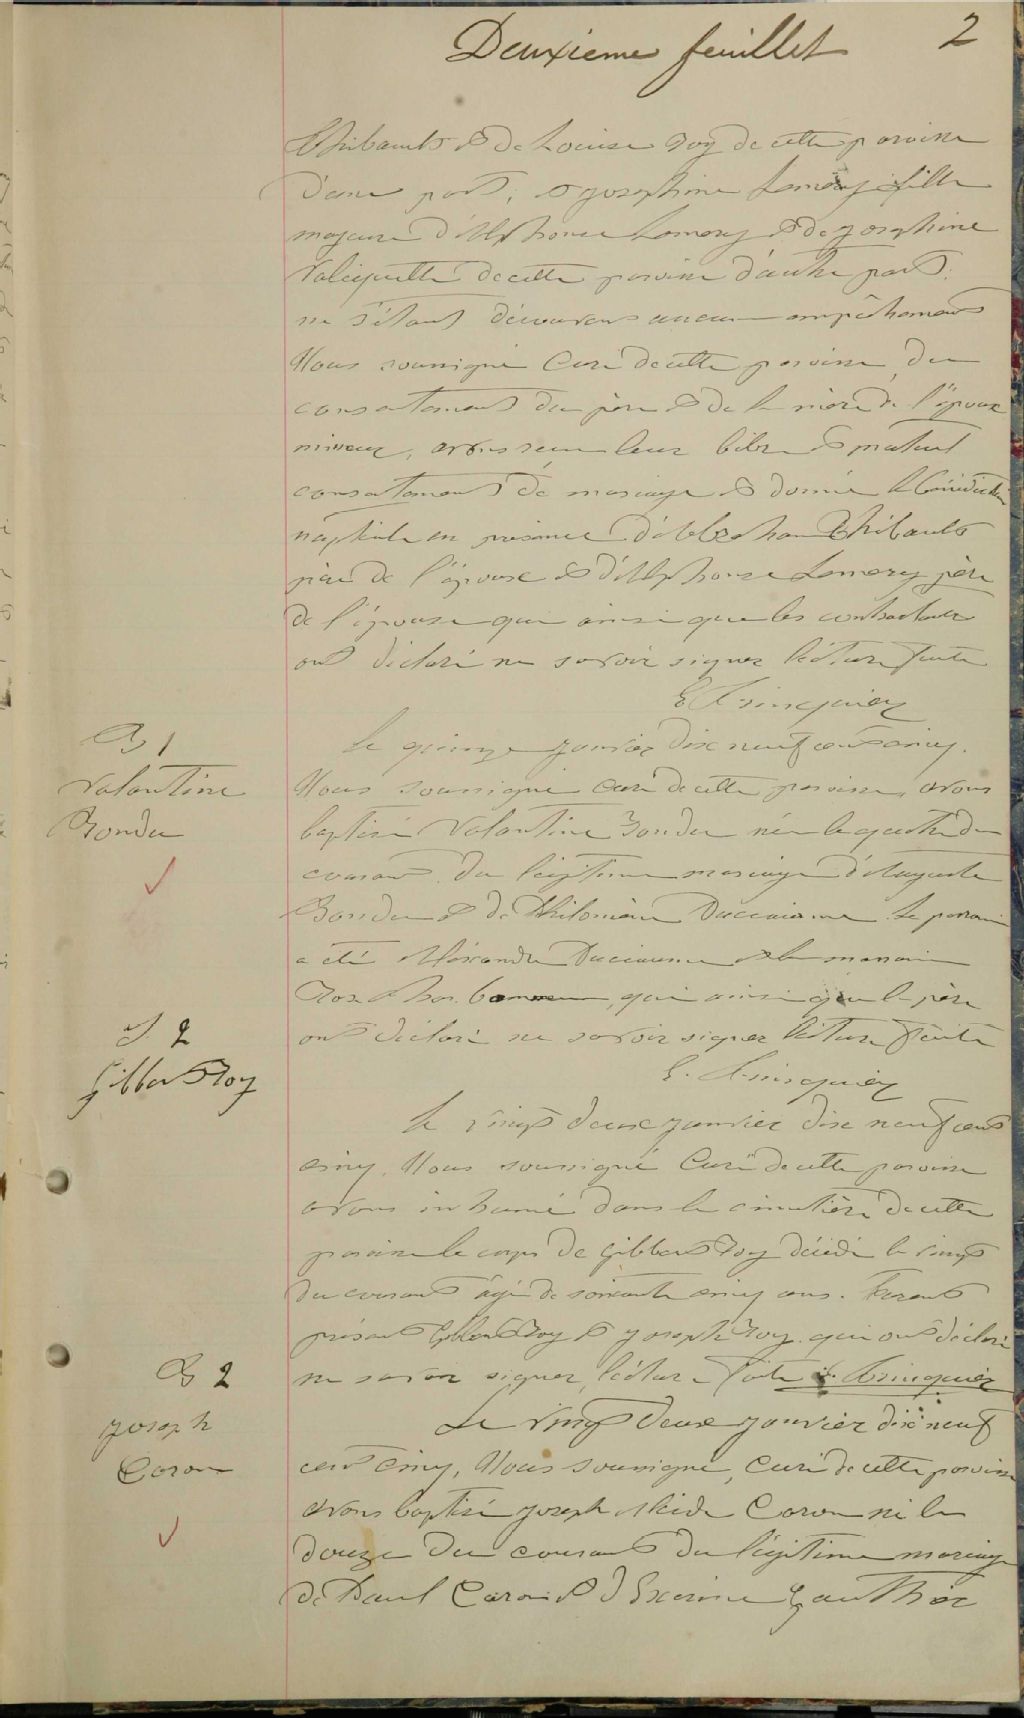 Deuxième feuillet 2
Thibault & de Louise Roy de cette paroisse
d'une part, & Joséphine Lemery fille
majeure d'Alphonse Lemery & de Josephine
Valiquette de cette paroisse d'autre part.
ne s'étant découvert aucun empêchement
Nous soussigné Curé de cette paroisse, du
consentement du père & de la mère de l'époux
mineur, avons reçu leur libre & mutuel
consentement de mariage & donné la bénédiction
nuptiale en présence Thibault
père de l'époux & d'Alphonse Lemery père
de l'épouse qui ainsi que les contractants
ont déclaré ne savoir signer lecture faite
B 1
Valentine
Bondu
Le quinze Janvier dix neuf cent cinq.
Nous soussigné Curé de cette paroisse, avons
baptisé Valentine Bondu née le quatre du
courant du légitime mariage d'Auguste
Bondu & de Philomène Le parrain
a été Alexandre & la marraine
Rose qui ainsi que le père
ont déclaré ne savoir signer lecture faite
S. 2
Gilbert Roy
Le vingt deux Janvier dix neuf cent
cinq, Nous soussigné Curé de cette paroisse
avons inhumé dans le cimetière de cette
paroisse le corps de Gilbert Roy décédé le vingt
du courant âgé de soixante cinq ans. Furent
présents Gilbert Roy & Joseph Roy qui ont déclaré
ne savoir signer, lecture faite
B 2
Joseph
Caron
Le vingt deux Janvier dix neuf
cent cinq, Nous soussigné, Curé de cette paroisse
avons baptisé Joseph Alcide Caron né le
douze du courant du légitime mariage
de Paul Caron & d'Exerine Gauthier